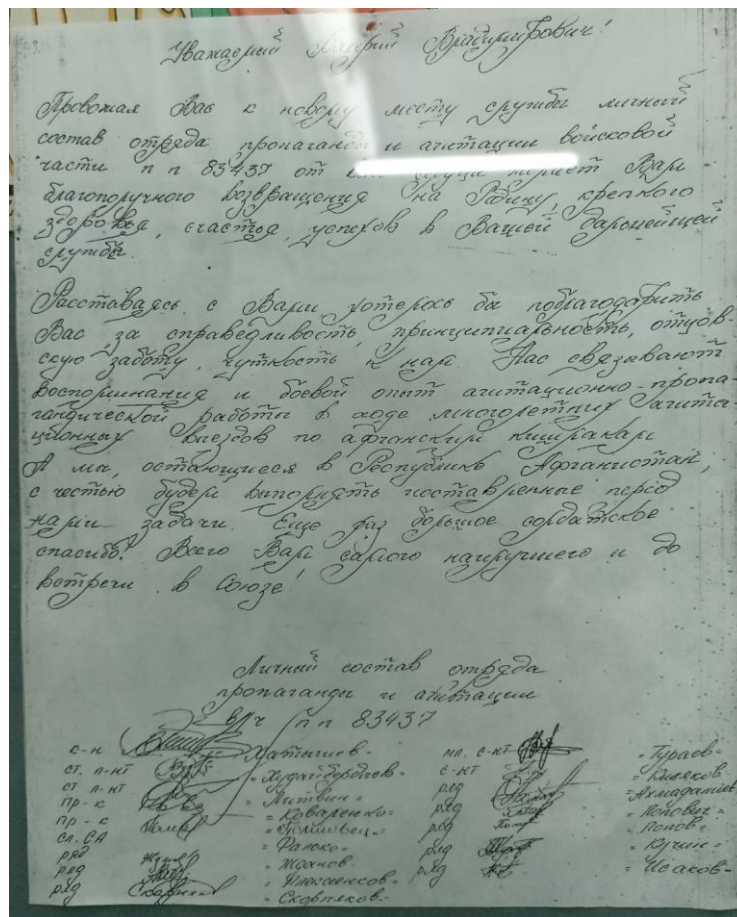 Уважаемый Валерий Владимирович!
Провожая Вас к новому месту службы личный
состав отряда пропаганды и агитации войсковой
части п п 83437 от всей души желает Вам
благополучного возвращения на Родину, крепкого
здоровья, счастья, успехов в Вашей дальнейшей
службе.
Расставаясь с Вами хотелось бы поблагодарить
Вас за справедливость, принципиальность, отцов-
скую заботу, чуткость к нам. Нас связывают
воспоминания и боевой опыт агитационно-пропа-
гандической работы в ходе многолетних агита-
ционных выездов по афганским кишлакам.
А мы, остающиеся в Республике Афганистан,
с честью будем выполнять поставленные перед
нами задачи. Еще раз большое солдатское
спасибо! Всего Вам самого наилучшего и до
встречи в Союзе!
Личный состав отряда
пропаганды и агитации
в/ч п п 83437
с-н мл. с-нт -Тураев-
ст. л-нт -Худайбердыев- с-нт
ст. л-нт -Литвин- ряд
пр-к =Коваленко= ряд =Попович=
пр-к ряд =Попов=
сл. СА ряд
ряд =Жданов- ряд =Исаков-
ряд
ряд